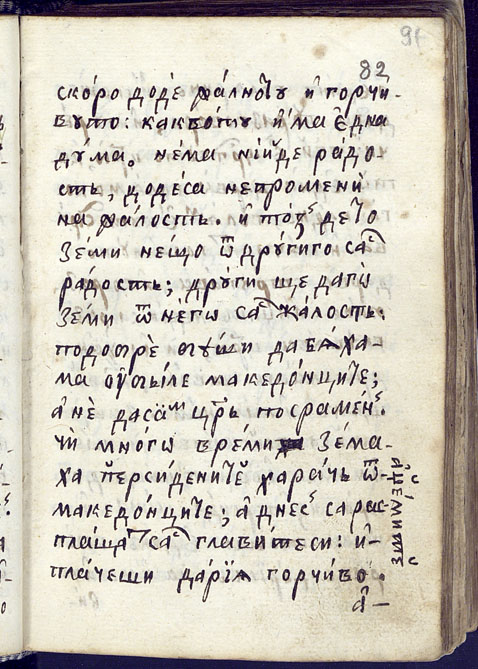 91
82
ско́ро додѐ жа́лното̀ и҆ горчи́-
вуто: каквото и҆́ма є҆дна
ду́ма. не́ма ні́йде ра́до-
сть, доде́са непромени̑
на жа́лость. и҆ то́зˢ дето
зе́ми не́що ѿ дру́гиго са́с
ра́дость; дру́ги ще дагѡ̀
зе́ми ѿ не́гѡ са́с жа́лость.
подобрѐ
да бѧ́ха-
ма македо́нците;
а҆ нѐ даса́м цр̑ь посраме́нˢ.
чѝ мно́гѡ вре́ми зе́ма-
ха персиде́ните хара́чь ѿ
македо́нците; а҆ дне́сˢ сарас-
пла́щат са́с глави́теси: и҆-
пла́чеши да́рїѧ горчи́во.
а҆-